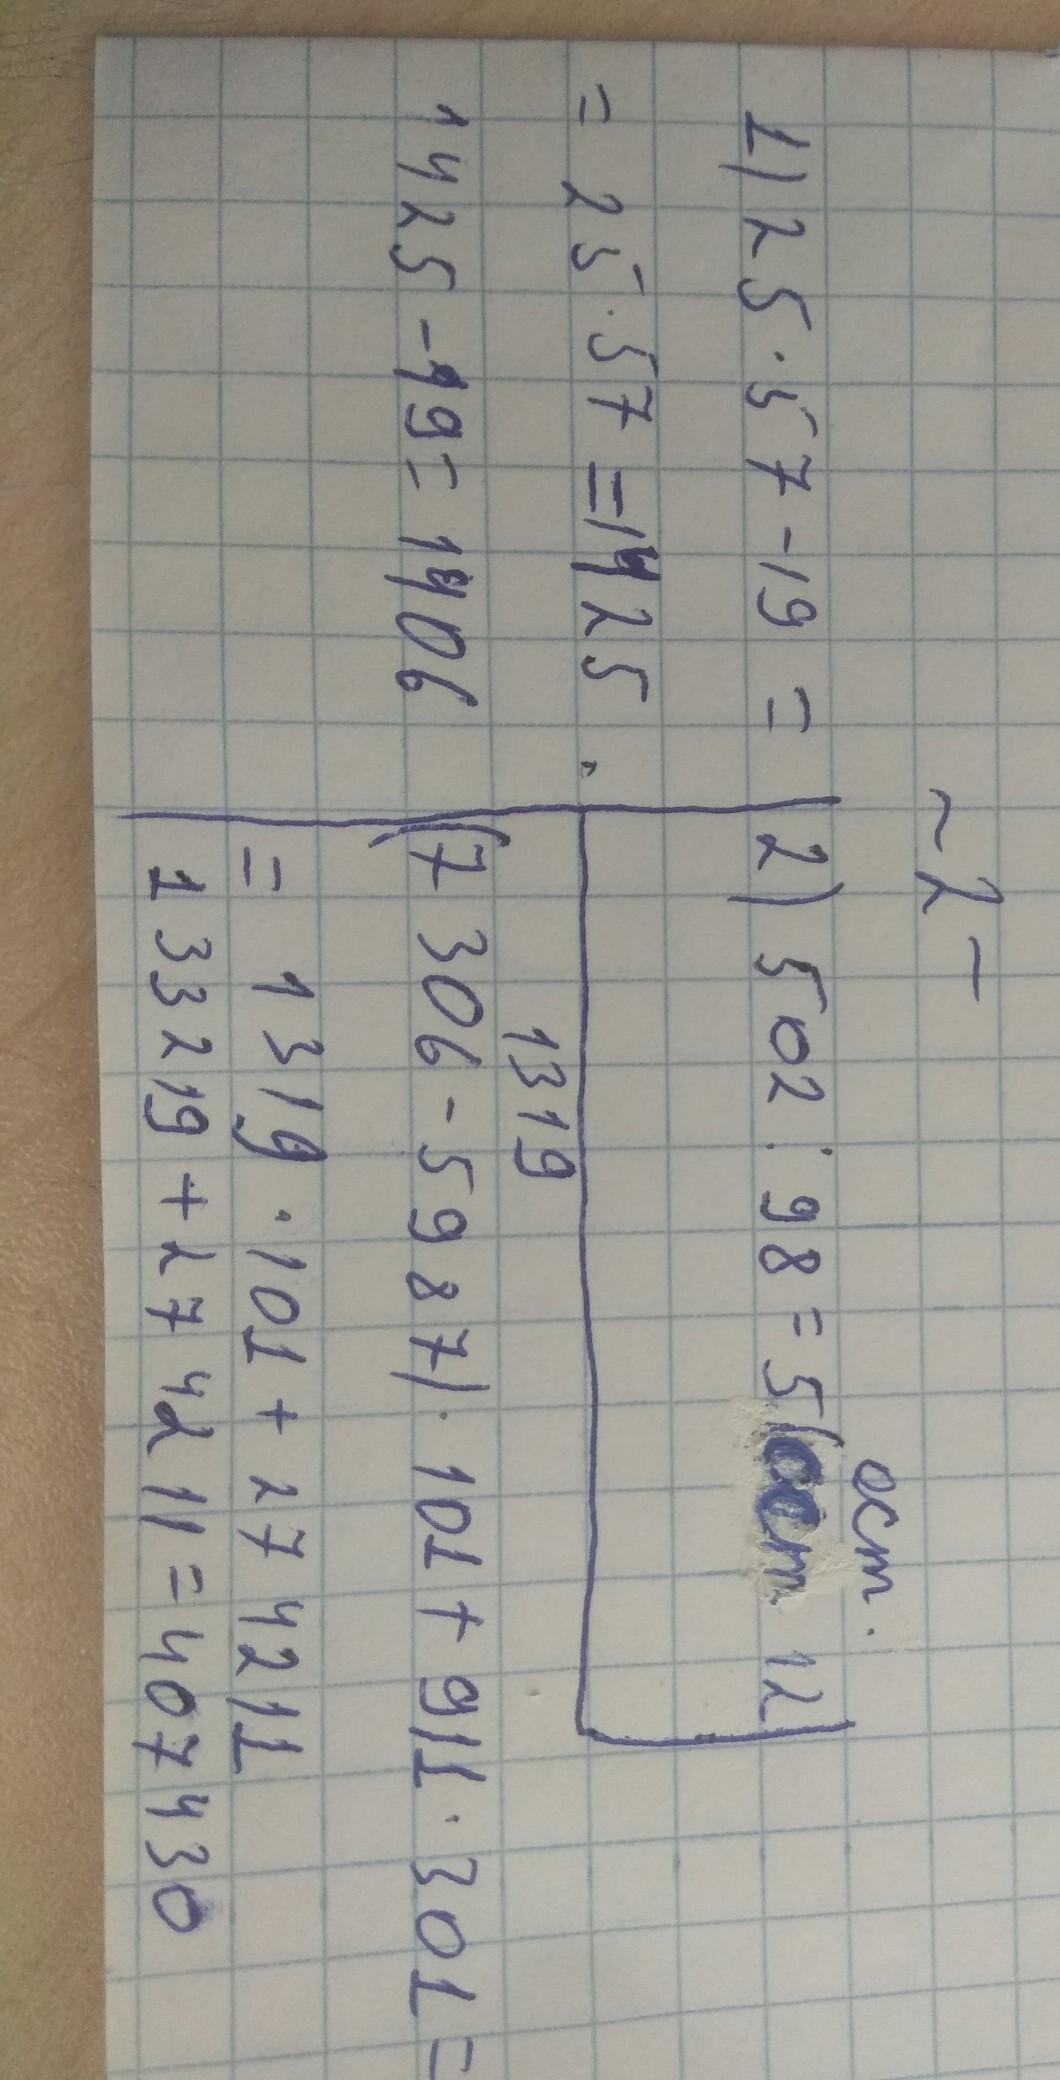 ~ 2 -
1) 25 · 57 - 19 =
= 25 · 57 = 1425
1425 - 19 = 1406
2) 502 : 98 = 5 (ост ост. 12)
1319
(7306 - 5987) · 101 + 911 · 301 =
= 1319 · 101 + 274211
133219 + 274211 = 407430